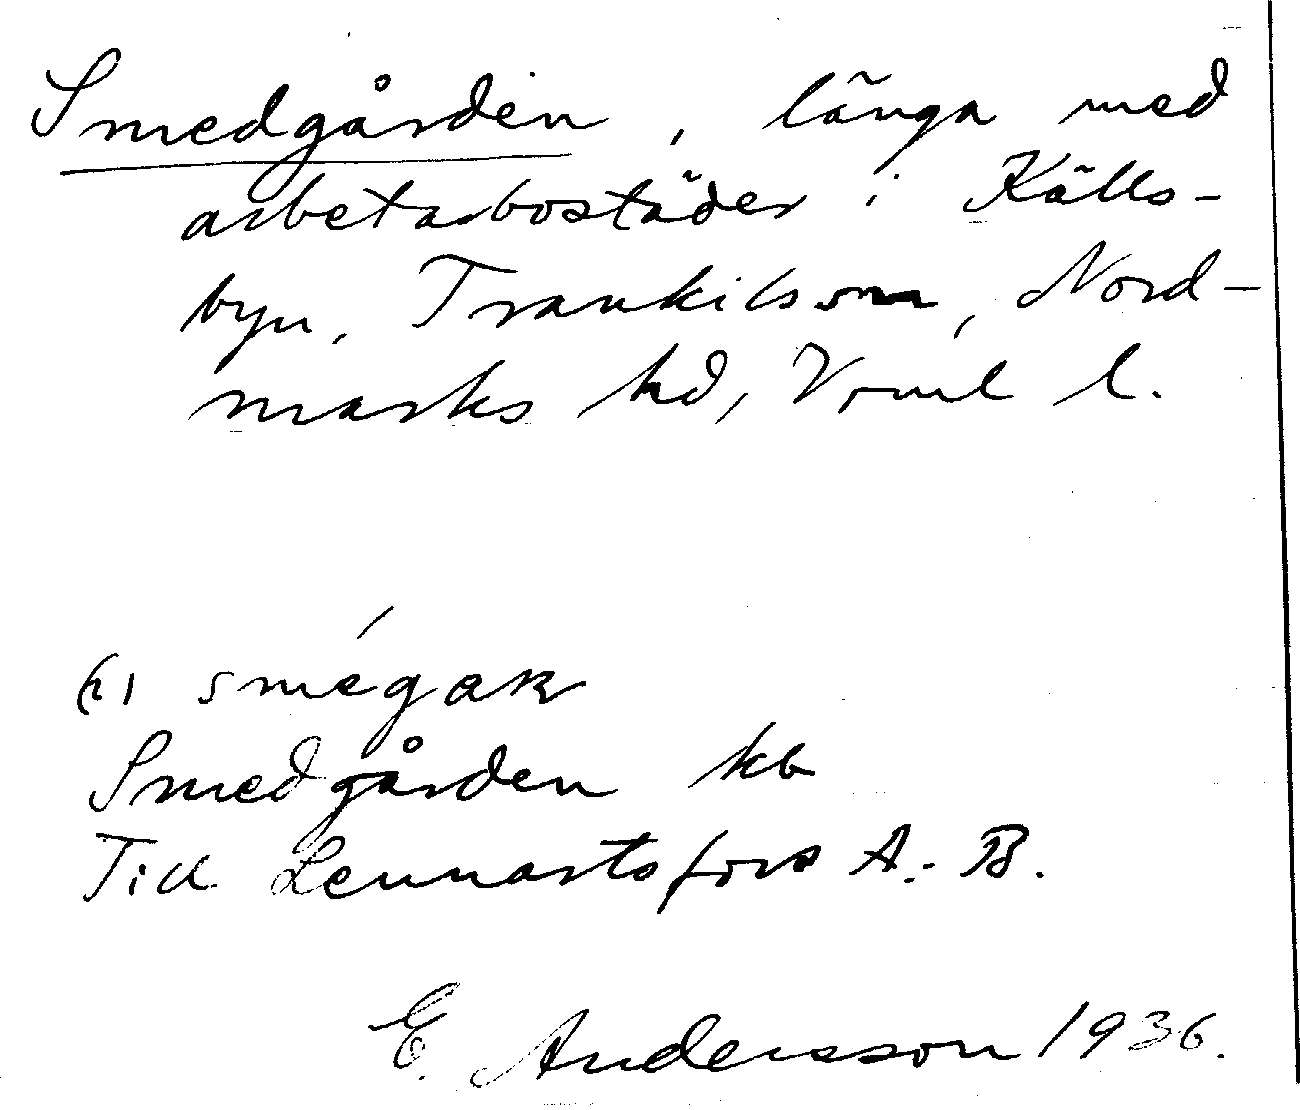 Smedgården, länga med
arbetarbostäder i Källs-
byn, Trankils sn, Nord-
marks hd, Vrml l.
smégaɴ
Smedgården kb
Till Lennartsfors A.-B.
E. Andersson 1936.